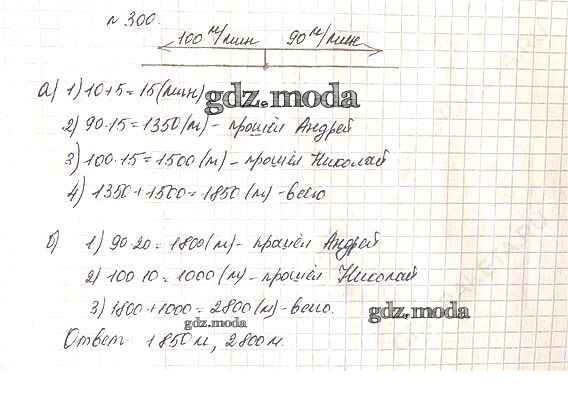 № 300.
100 м/мин 90 м/мин
а) 1) 10+5=15(мин)
gdz.moda
2) 90·15=1350(м)- прошёл Андрей
3) 100·15=1500(м)- прошёл Николай
4) 1350+1500=1850(м)-всего
б) 1) 90·20=1800(м)- прошёл Андрей
2) 100·10=1000(м)- прошёл Николай
3) 1800+1000=2800(м)-всего.
gdz.moda
gdz.moda
Ответ: 1850м, 2800м.